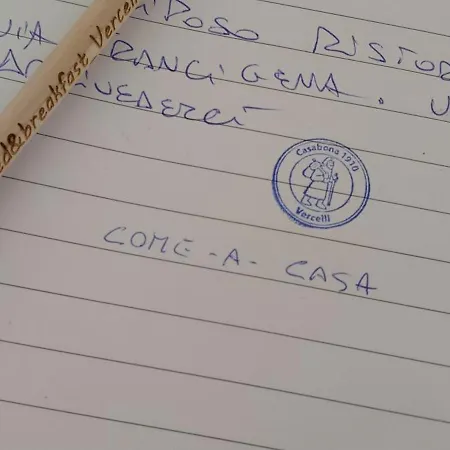 RIPOSO RISTOR
FRANCIGENA. U
ARRIVEDERCI
d&breakfast Vercelli
Casabona 1910
Vercelli
COME-A-CASA